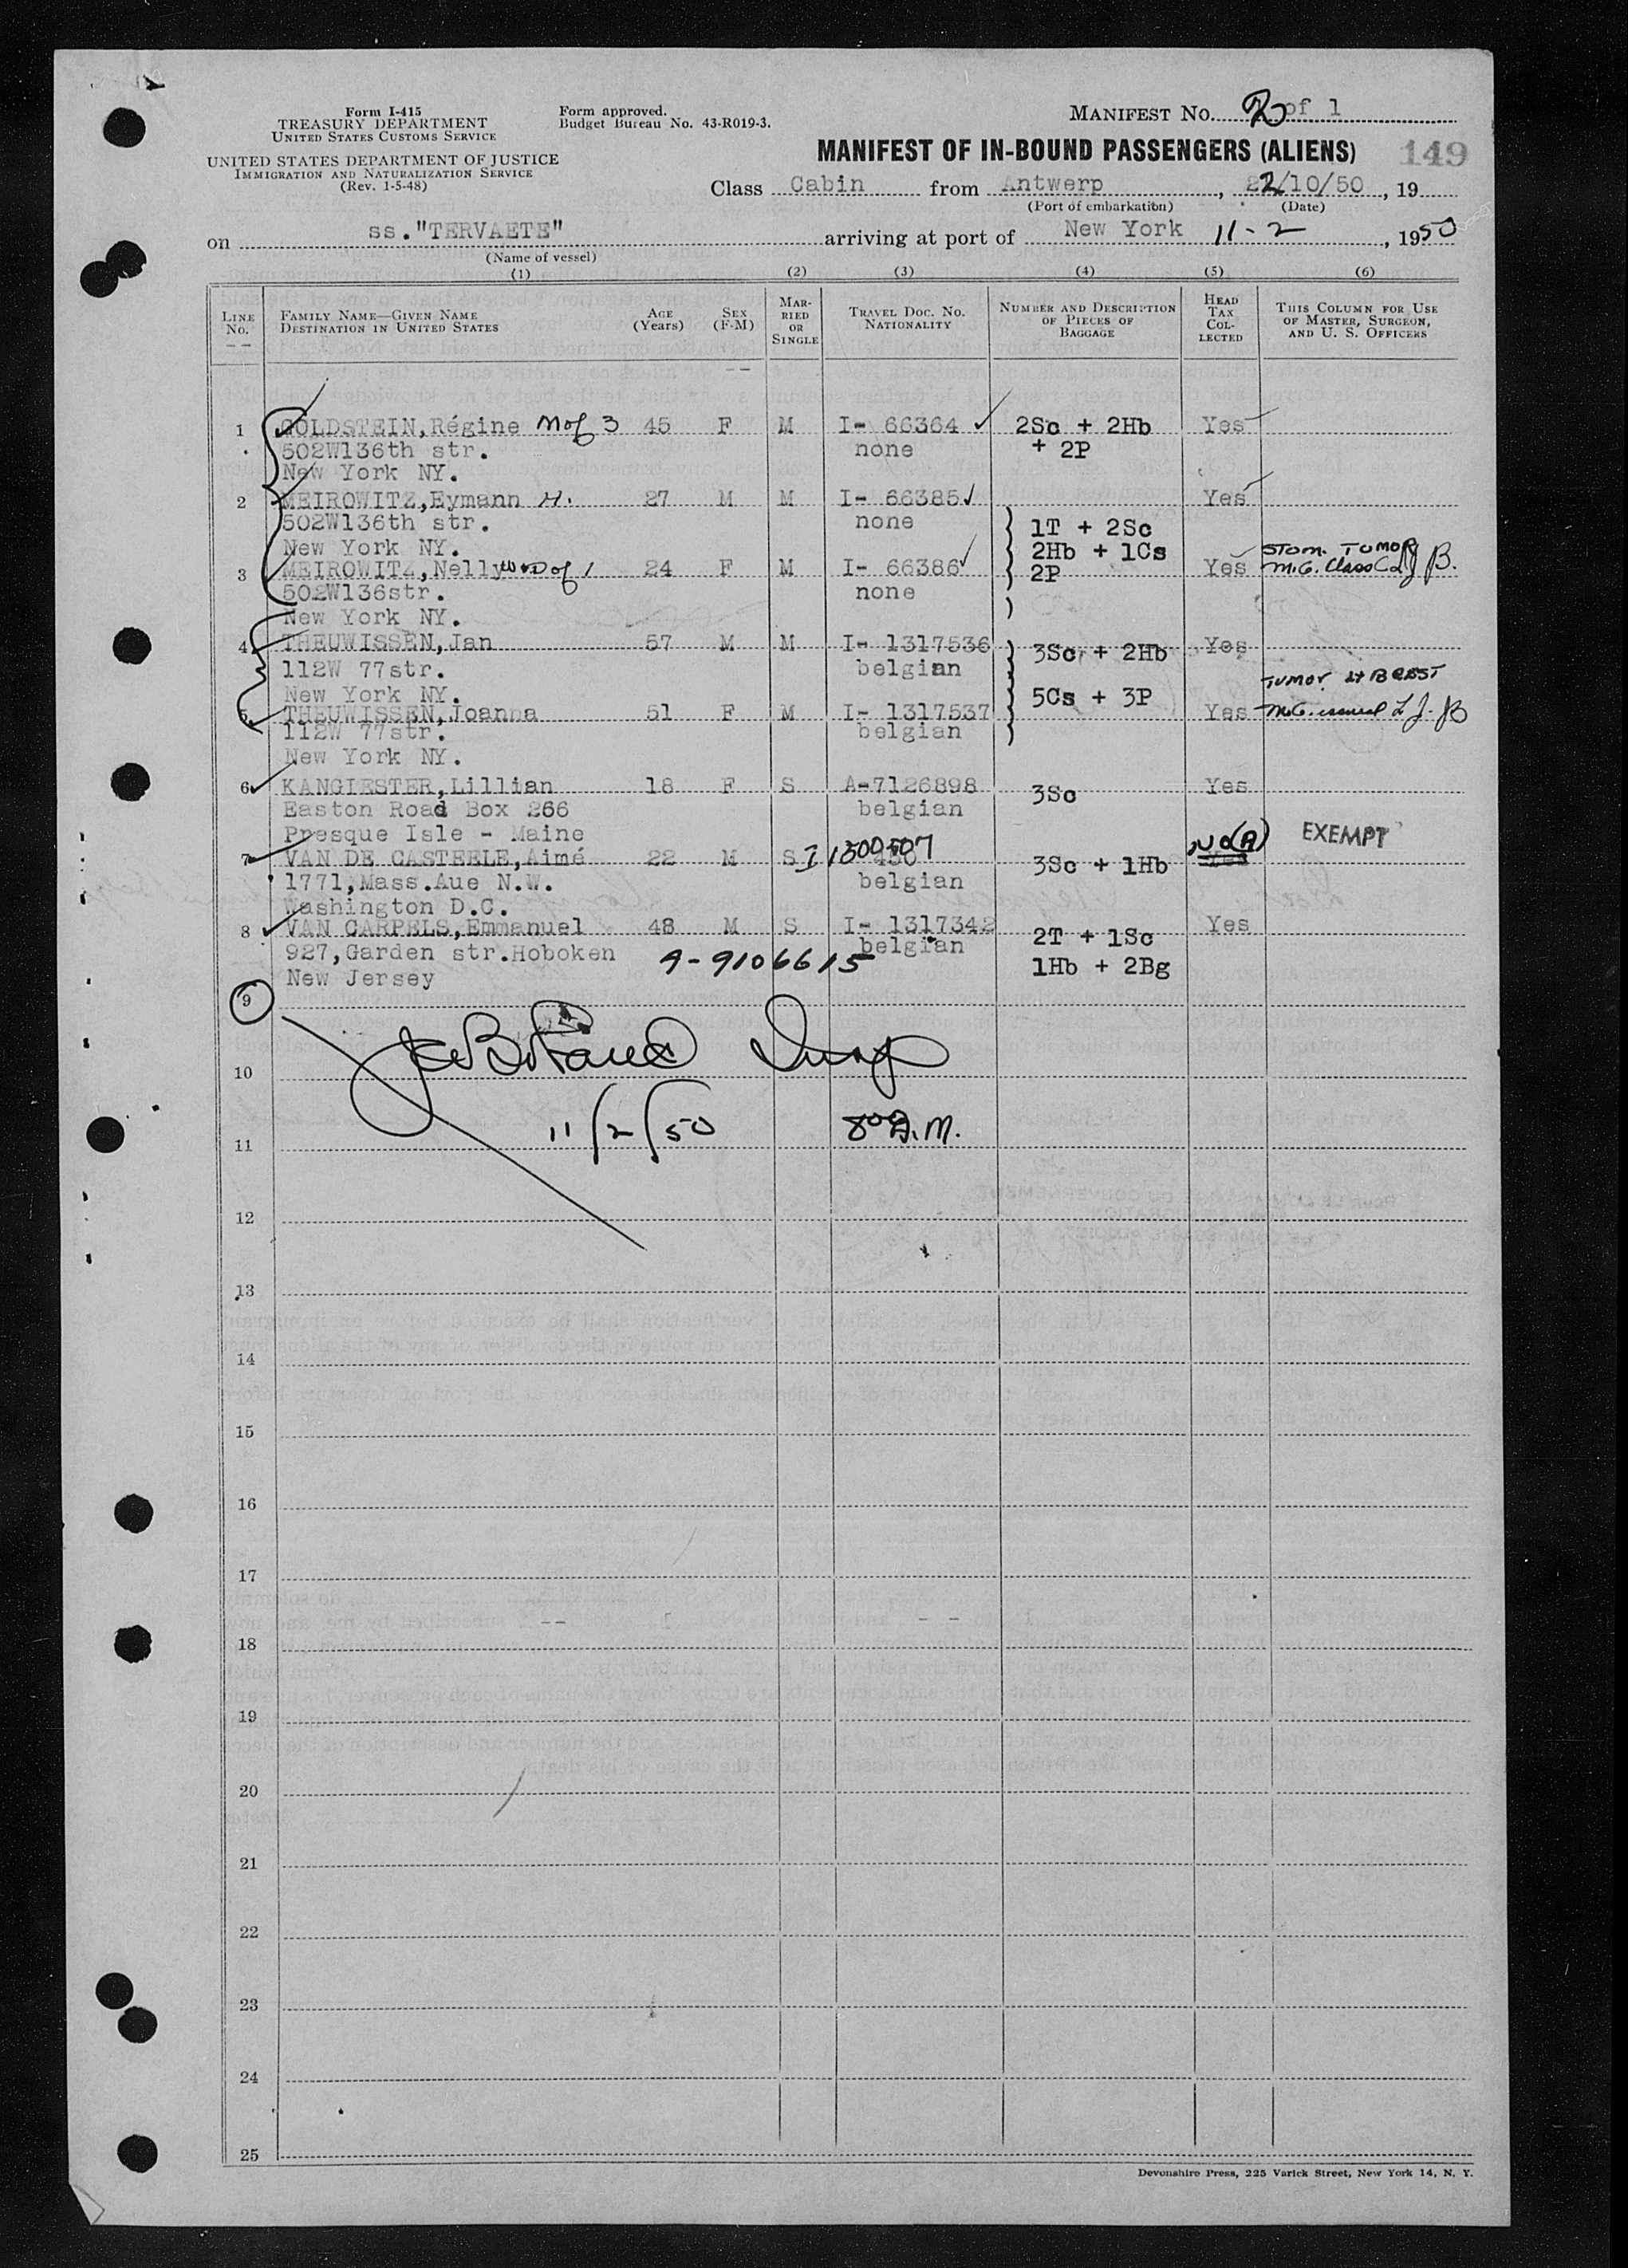 Form I-415
TREASURY DEPARTMENT
UNITED STATES CUSTOMS SERVICE
UNITED STATES DEPARTMENT OF JUSTICE
IMMIGRATION AND NATURALIZATION SERVICE
(Rev. 1-5-48)
Form approved.
Budget Bureau No. 43-R019-3.
MANIFEST NO. 2 of 1
MANIFEST OF IN-BOUND PASSENGERS (ALIENS) 149
Class Cabin from Antwerp, 22/10/50, 19
(Port of embarkation) (Date)
on ss."TERVAETE" arriving at port of New York 11-2, 1950
(Name of vessel)
(1) (2) (3) (4) (5) (6)
LINE NO. FAMILY NAME—GIVEN NAME DESTINATION IN UNITED STATES AGE (Years) SEX (F-M) MARRIED OR SINGLE TRAVEL DOC. NO. NATIONALITY NUMBER AND DESCRIPTION OF PIECES OF BAGGAGE HEAD TAX COLLECTED THIS COLUMN FOR USE OF MASTER, SURGEON, AND U. S. OFFICERS
1 GOLDSTEIN,Régine M of 3 45 F M I- 66364 2Sc + 2Hb Yes
502W136th str. none + 2P
New York NY.
2 MEIROWITZ,Eymann H. 27 M M I- 66385 Yes
502W136th str. none 1T + 2Sc
New York NY. 2Hb + 1Cs STOM. TUMOR
3 MEIROWITZ,Nelly 24 F M I- 66386 2P Yes M.C. Class C
502W136str. none
New York NY.
4 THEUWISSEN,Jan 57 M M I- 1317536 3Sc + 2Hb Yes
112W 77str. belgian
New York NY. 5Cs + 3P TUMOR Lt BREST
5 THEUWISSEN,Joanna 51 F M I- 1317537 Yes M.C. issued L J. B
112W 77str. belgian
New York NY.
6 KANGIESTER,Lillian 18 F S A-7126898 3Sc Yes
Easton Road Box 266 belgian
Presque Isle - Maine
7 VAN DE CASTEELE,Aimé 22 M S I 1300507 3Sc + 1Hb No(A) EXEMPT
1771,Mass.Aue N.W. belgian
Washington D.C.
8 VAN CARPELS,Emmanuel 48 M S I- 1317342 2T + 1Sc Yes
927,Garden str.Hoboken A-9106615 belgian
New Jersey 1Hb + 2Bg
9
10
11/2/50 8ºº A.M.
11
12
13
14
15
16
17
18
19
20
21
22
23
24
25
Devonshire Press, 225 Varick Street, New York 14, N. Y.